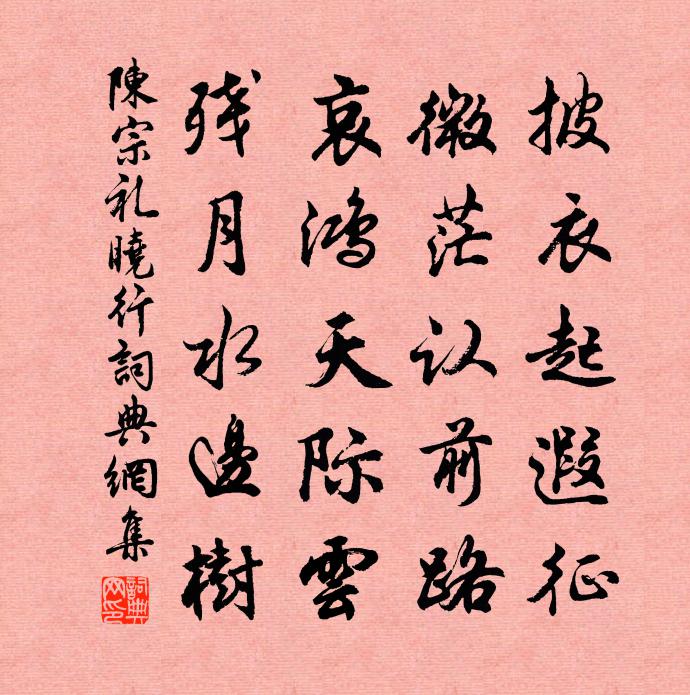 披衣起遐征
微茫认前路
哀鸿天际雲
残月水邊樹
陳宗礼曉行詞典網集
詞典網印